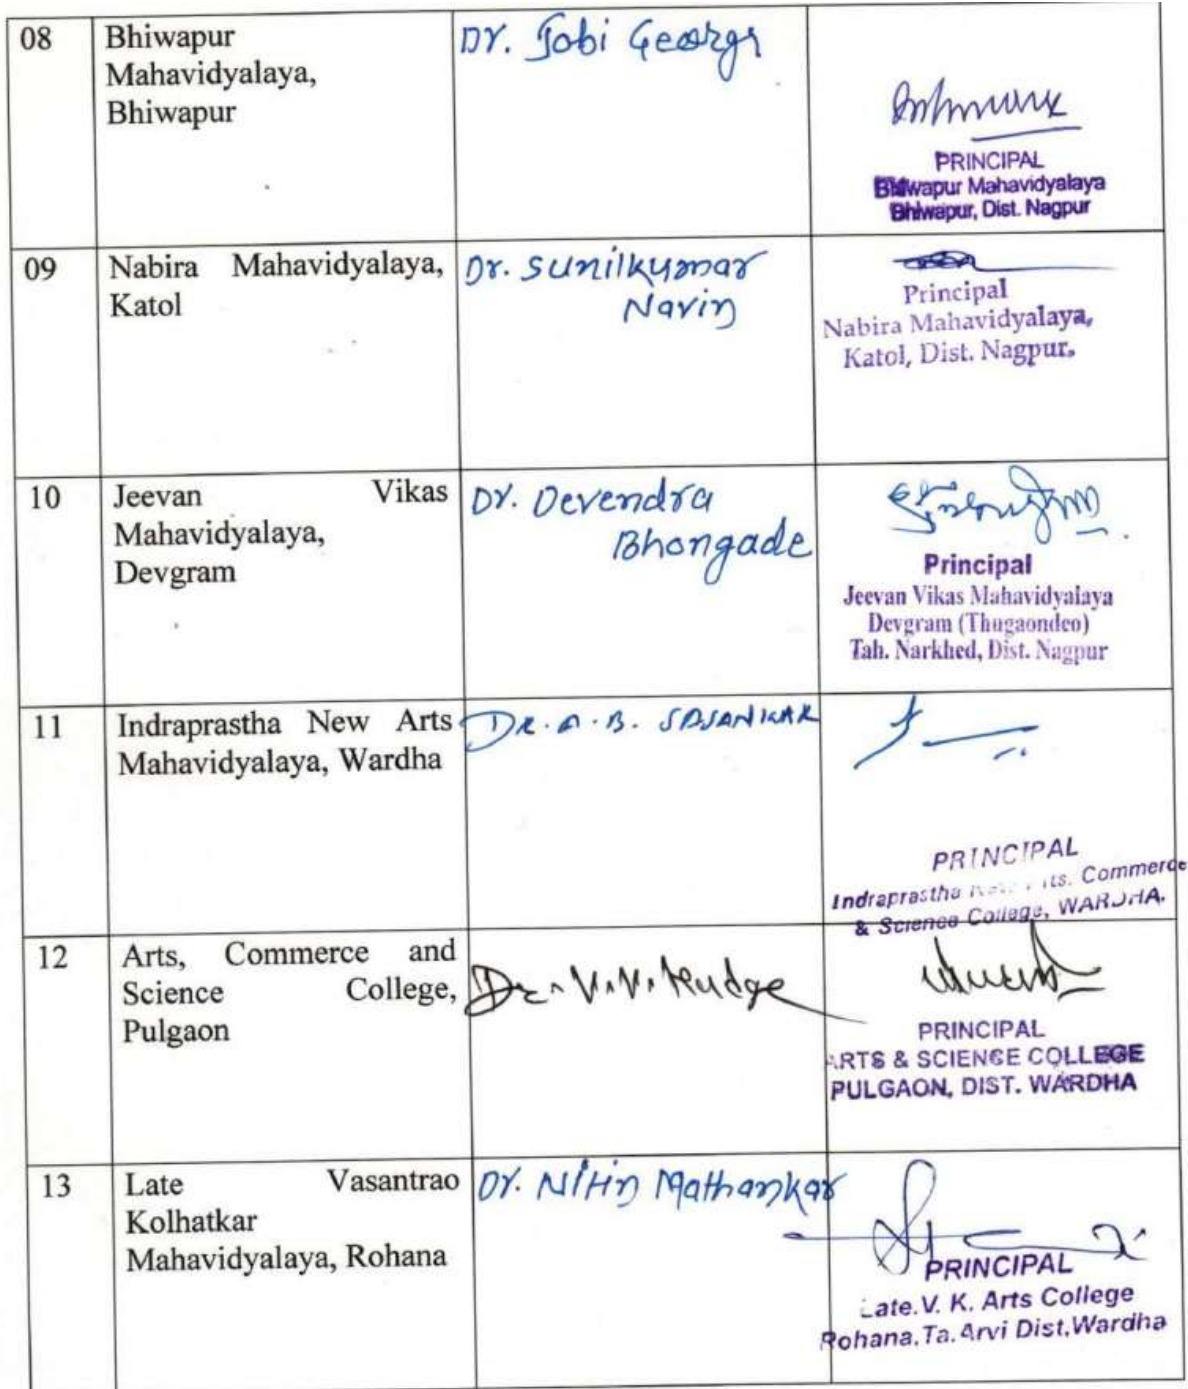 08
Bhiwapur
Mahavidyalaya,
Bhiwapur
Dr. Jobi George
PRINCIPAL
Bhiwapur Mahavidyalaya
Bhiwapur, Dist. Nagpur
09
Nabira Mahavidyalaya,
Katol
Dr. Sunilkumar
Navin
Principal
Nabira Mahavidyalaya,
Katol, Dist. Nagpur.
10
Jeevan Vikas
Mahavidyalaya,
Devgram
Dr. Devendra
Bhongade
Principal
Jeevan Vikas Mahavidyalaya
Devgram (Thugaondeo)
Tah. Narkhed, Dist. Nagpur
11
Indraprastha New Arts
Mahavidyalaya, Wardha
DR. A. B. SASANKAR
PRINCIPAL
Indraprastha Commerce
& Science College, WARDHA.
12
Arts, Commerce and
Science College,
Pulgaon
Dr. V. V. Kudge
PRINCIPAL
ARTS & SCIENCE COLLEGE
PULGAON, DIST. WARDHA
13
Late Vasantrao
Kolhatkar
Mahavidyalaya, Rohana
Dr. Nitin Mathankar
PRINCIPAL
Late. V. K. Arts College
Rohana, Ta. Arvi Dist, Wardha